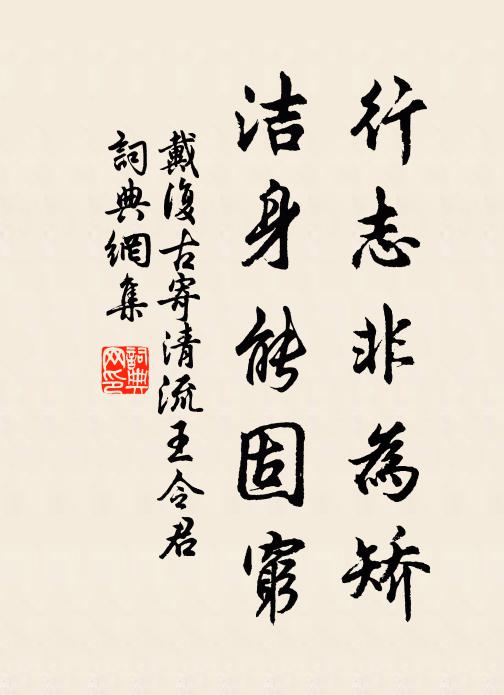 行志非為矯
洁身能固窮
戴復古寄清流王令君
詞典網集
詞典网印